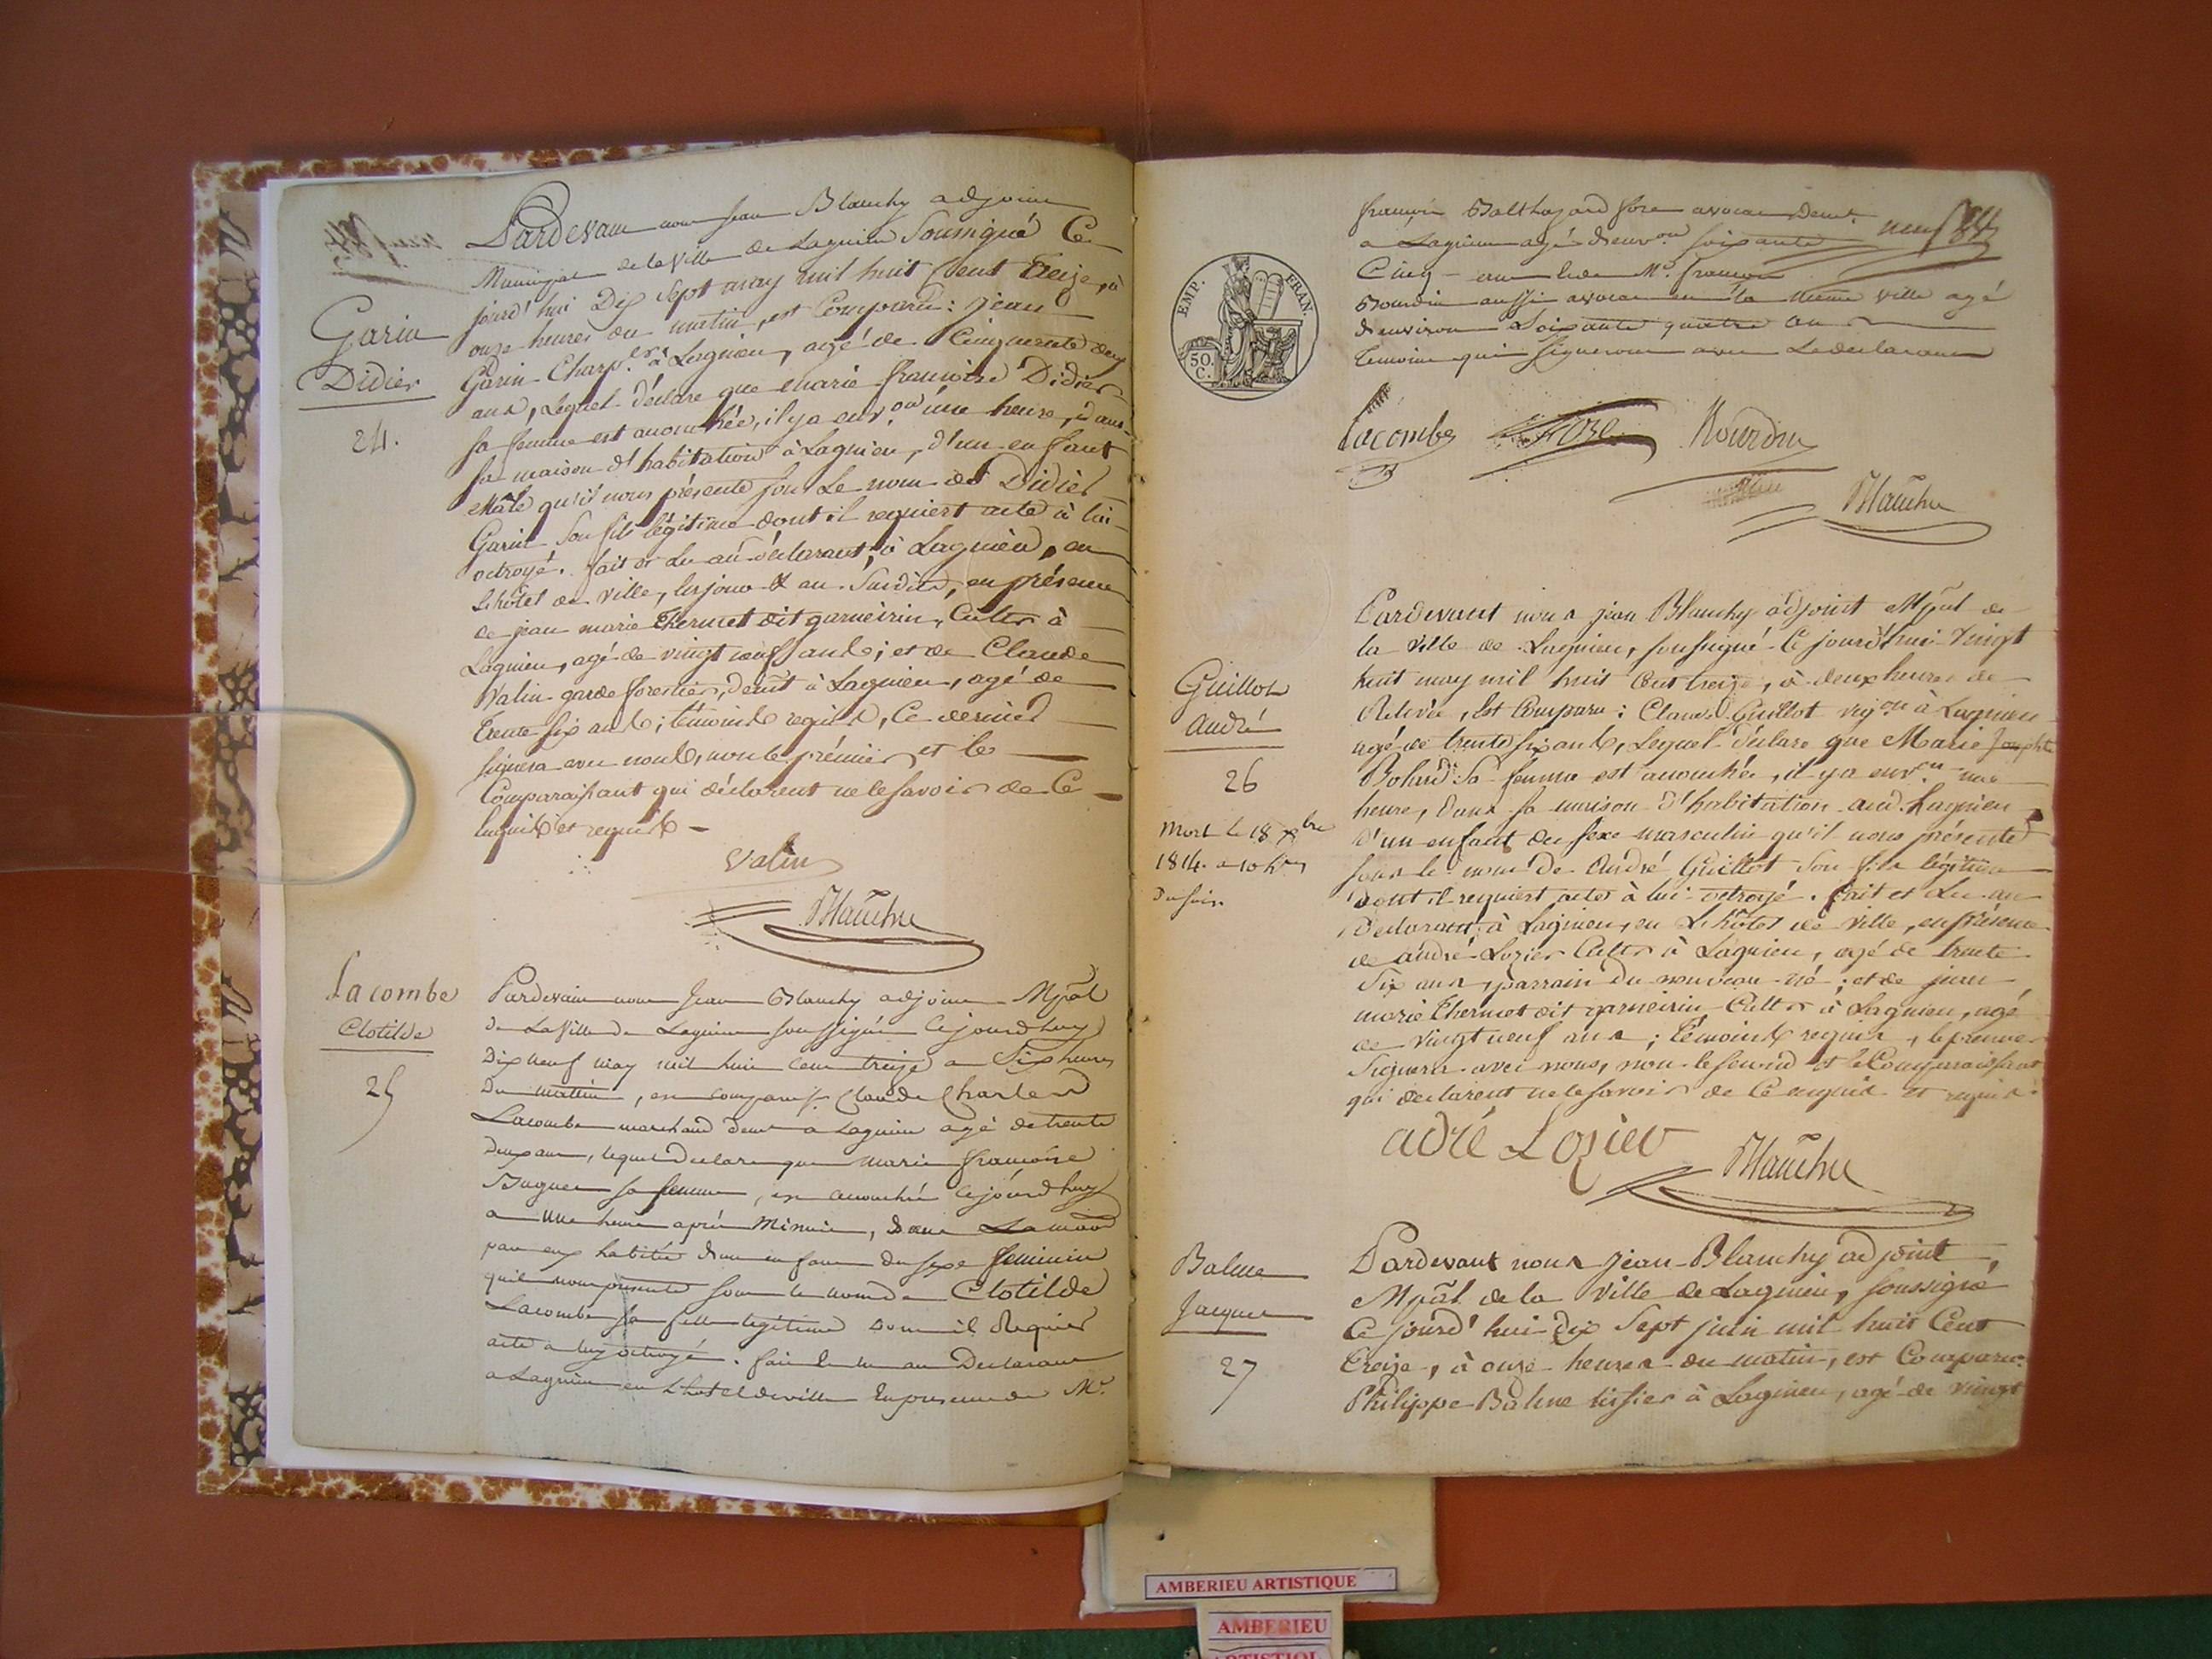 Garin
Didier
24.
Pardevant nous Jean Blanchy adjoint
Municipal de la Ville de Lagnieu Soussigné Ce
jourd'hui Dix Sept may mil huit Cent Treize, à
onze heures du matin, est Comparu: Jean
Garin Charp.er à Lagnieu, agé de Cinquante deux
ans, Lequel déclare que Marie françoise Didier
sa femme est accouchée, il y a env.on une heure, dans
sa maison d'habitation à Lagnieu, d'un enfant
Mâle qu'il nous présente sous Le nom de Didier
Garin Son fils légitime dont il requiert acte à lui
octroyé. fait et Lu au déclarant, à Lagnieu, en
L'hôtel de Ville, les jour & an Susdits, en présence
de jean marie Thermet dit garneirin, Cultr à
Lagnieu, agé de vingt neuf ans; et de Claude
Valin garde forestier, demt à Lagnieu, agé de
Trente six ans; témoins requis, Ce dernier
signera avec nous, non le premier et le
Comparaissant qui déclarent ne le savoir de Ce
Enquis et requis
Valin
Blanchy
Lacombe
Clotilde
25
Pardevant nous Jean Blanchy adjoint Mpâl
de La Ville de Lagnieu soussigné Cejourdhuy
Dix neuf may mil huit cent treize a Six heures
Du mattin, est comparu Claude Charles
Lacombe marchand demt a Lagnieu agé de trente
Deux ans, lequel Declare que marie francoise
sa femme, est accouchée cejourdhuy
a une heure après Minuit, Dans La maison
par eux habitée d'un enfant du sexe feminin
quil nous présente sous le nom de Clotilde
Lacombe sa fille legitime Dont il Requier
acte a luy octroyé. fait et lu au Declarant
a Lagnieu en L'hotel de ville En presence de Mr
EMP. FRAN.
50 C.
francois Balthazard fore avocat Demt
a Lagnieu agé d'env.on soixante
Cinq ans et de Mr. francois
Bourdin aussi avocat en la même ville agé
d'environ Soixante quatre ans
témoins qui signeront avec Le declarant
neuf
Lacombe Fore Bourdin
Blanchy
Guillot
André
26
Mort le 18 xbre
1814. a 10 hres
Du soir
Pardevant nous jean Blanchy adjoint Mpâl de
la Ville de Lagnieu, soussigné Ce jourd'hui Vingt
huit may mil huit Cent treize, à deux heures de
Relevée, Est Comparu: Claude Guillot vig.on à Lagnieu
agé de trente six ans, Lequel déclare que Marie Josephte
sa femme est accouchée, il y a env.on une
heure, dans sa maison d'habitation aud. Lagnieu
d'un enfant du sexe masculin qu'il nous présente
sous le nom de André Guillot Son fils légitime
dont il requiert acte à lui octroyé. fait et Lu au
Déclarant à Lagnieu, en L'hôtel de Ville, en présence
de andré Lozier Cultr à Lagnieu, agé de trente
Six ans, parrain du nouveau né; et de jean
marie Thermet dit garneirin Cultr à Lagnieu, agé
de vingt neuf ans; témoins requis, le premier
Signera avec nous, non le second et le Comparaissant
qui déclarent ne le savoir de Ce enquis et requis.
adré Lozier
Blanchy
Balme
Jacques
27
Pardevant nous Jean Blanchy adjoint
Mpâl de la Ville de Lagnieu, soussigné
Ce jourd'hui Dix Sept juin mil huit Cent
Treize, à onze heures du matin, est Comparu:
Philippe Balme tissier à Lagnieu, agé de vingt
AMBERIEU ARTISTIQUE
AMBERIEU
ARTISTIQUE